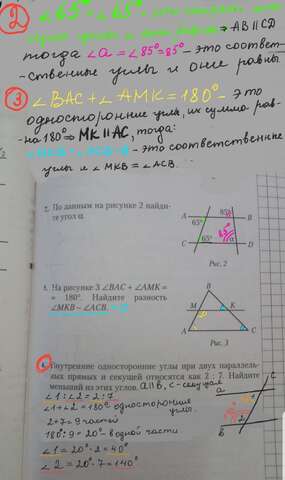 2 ∠65° = ∠65°
⇒ AB ∥ CD
тогда ∠a = ∠85°=85° - это соответ-
-ственные углы и они равны.
3 ∠BAC + ∠AMK = 180° - это
односторонние углы, их сумма рав-
на 180° ⇒ MK ∥ AC, тогда:
- это соответственные
углы и ∠MKB = ∠ACB.
2. По данным на рисунке 2 найди-
те угол α.
A 65° 85° B
65°
C 65° α D
Рис. 2
3. На рисунке 3 ∠BAC + ∠AMK =
= 180°. Найдите разность
∠MKB – ∠ACB.
B
M K
A C
Рис. 3
4. Внутренние односторонние углы при двух параллель-
ных прямых и секущей относятся как 2 : 7. Найдите
меньший из этих углов. a∥b, c - секущая
∠1 : ∠2 = 2 : 7
∠1 + ∠2 = 180° односторонние
углы.
2+7 = 9 частей
180° : 9 = 20° - в одной части
∠1 = 20° · 2 = 40°
∠2 = 20° · 7 = 140°
c
a
1
2
b